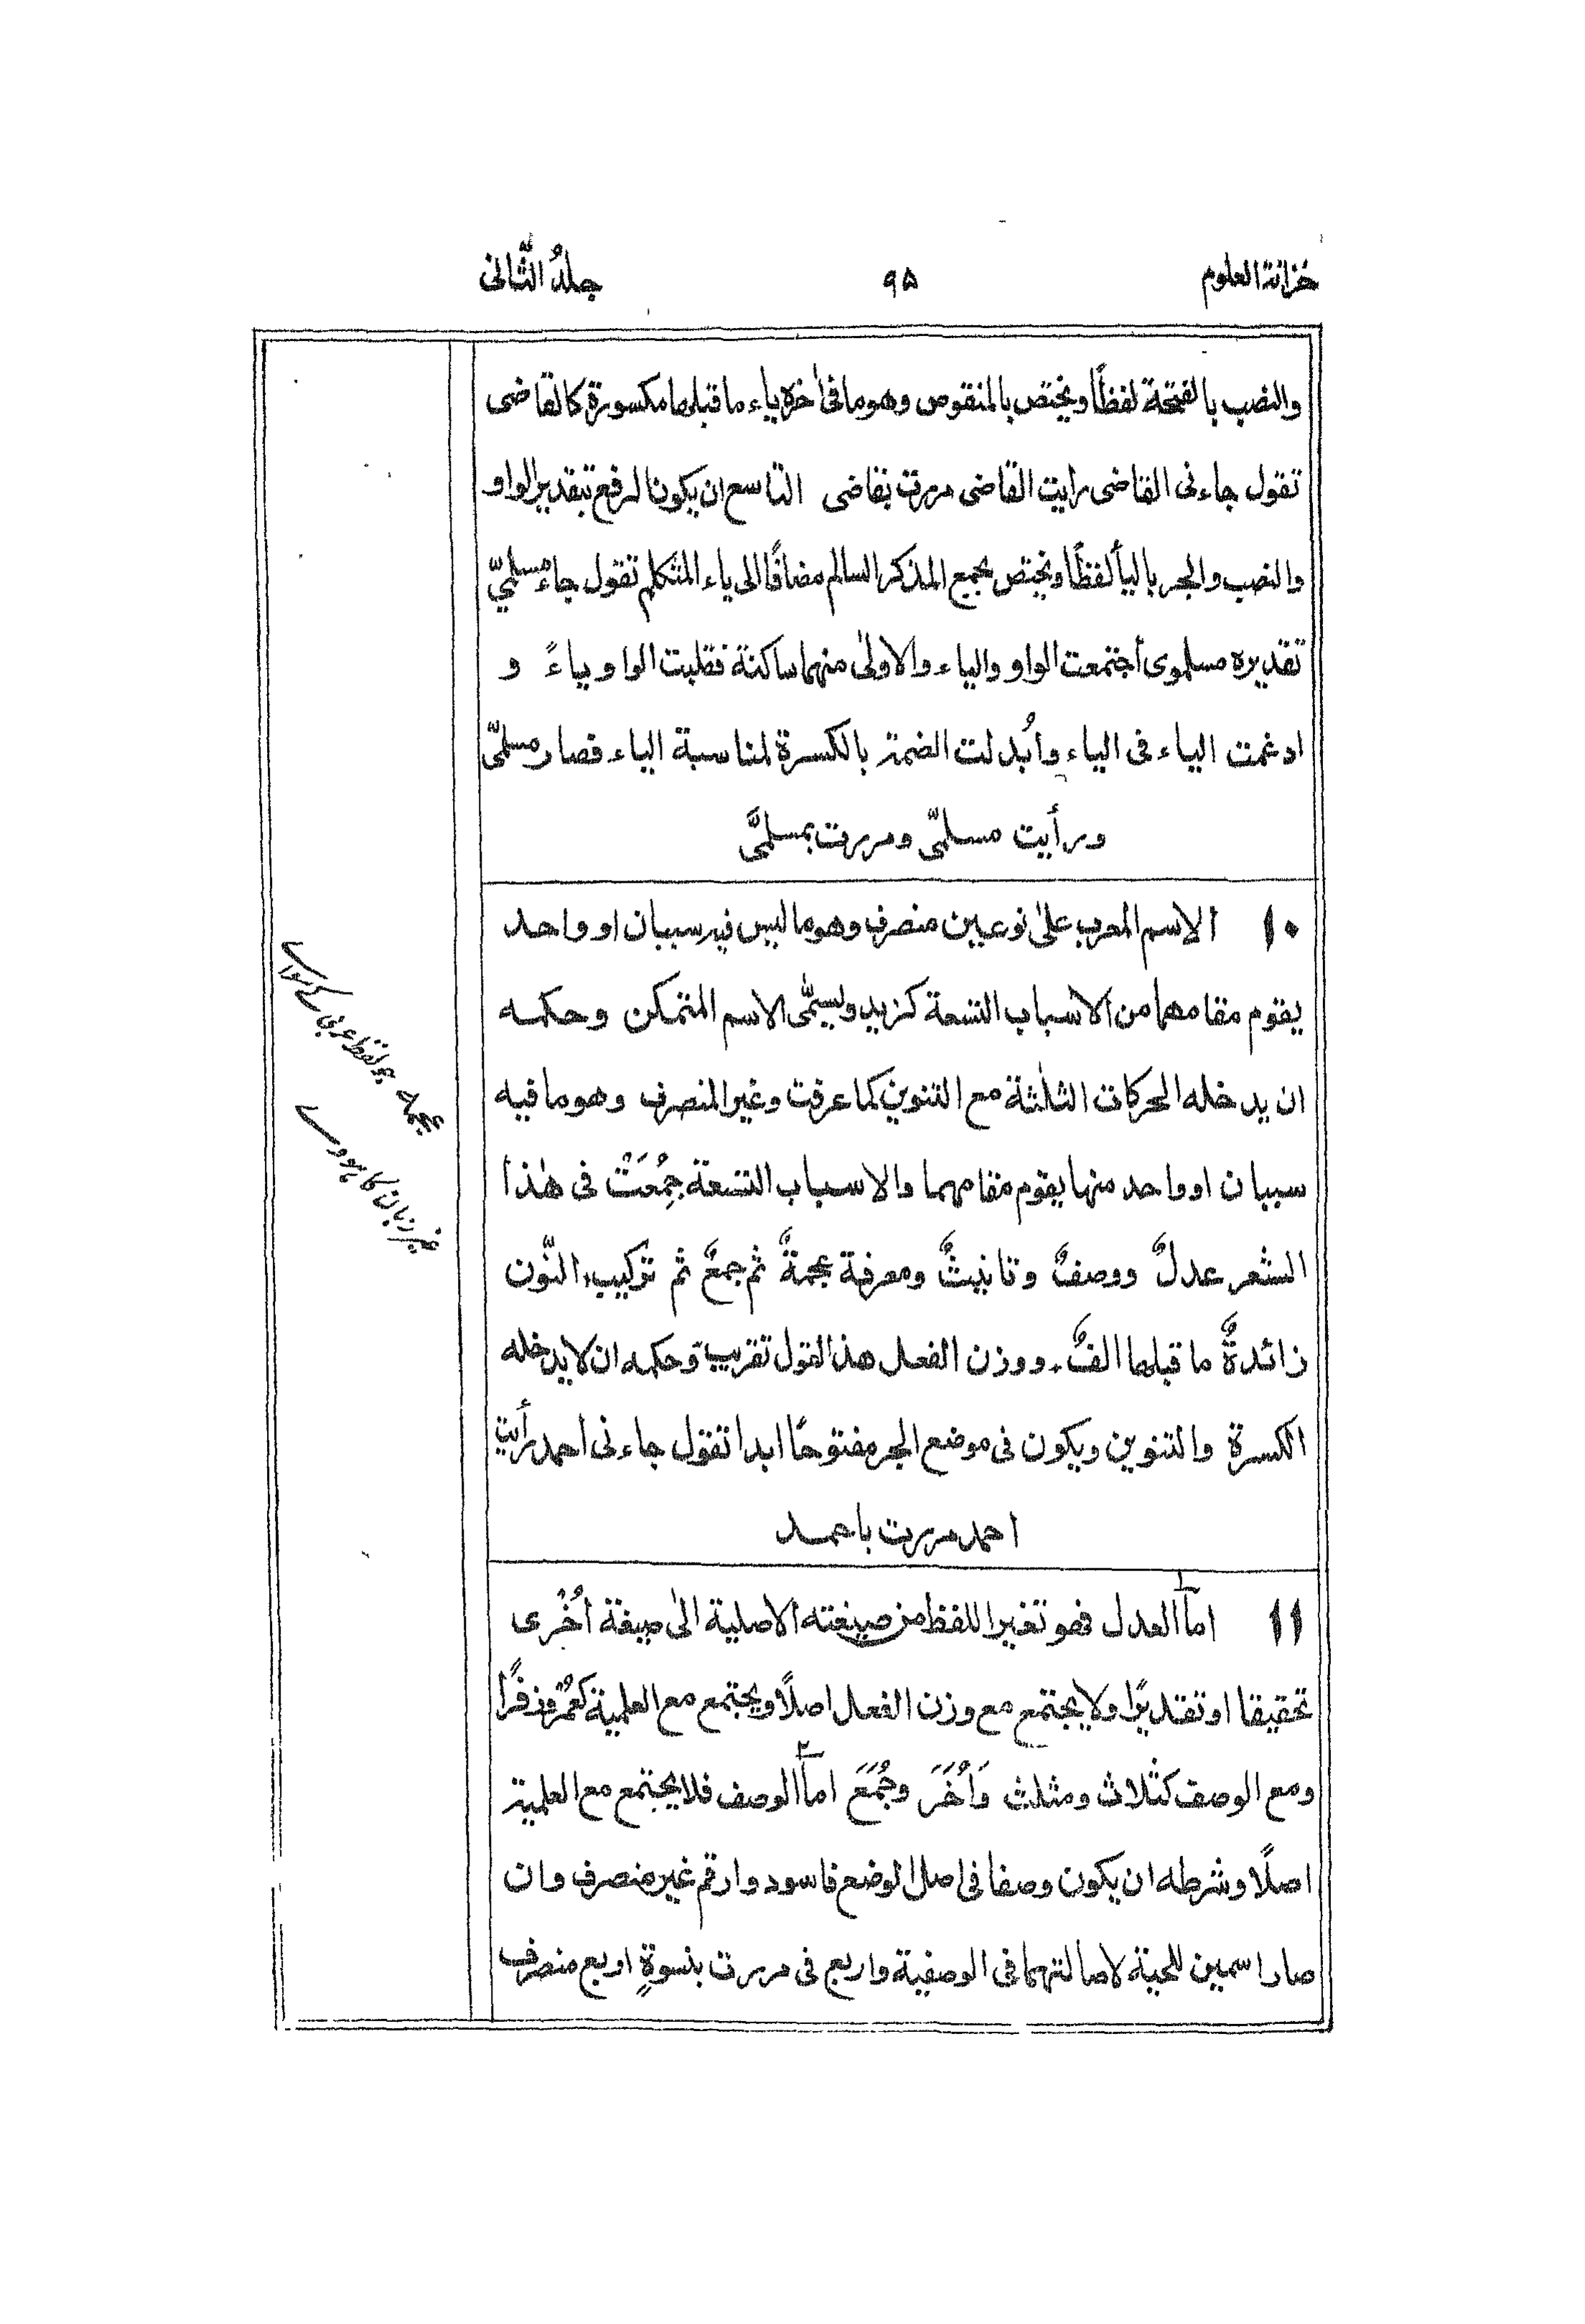 خزانة العلوم ۹۵ جلدُ الثَّانى
والنصب بالفتحة لفظًا ويختص بالمنقوص وهو ما فى اٰخره ياء ما قبلها مكسورة كالقاضى
تقول جاءنى القاضى رايت القاضى مررت بقاضى التاسع ان يكون الرفع بتقدير الواو
والنصب والجر باليأ لفظًا ويختص بجمع المذكر السالم مضافًا الى ياء المتكلم تقول جاء مسلمىّ
تقديره مسلموى اجتمعت الواو والياء والاولىٰ منهما ساكنة فقلبت الواو ياءً و
ادغمت الياء فى الياء وابُدلت الضمة بالكسرة لمناسبة الياء فصار مسلمىّ
ورأيت مسلمىّ ومررت بمسلمىَّ
۱۰ الاسم المعرب علىٰ نوعين منصرف وهو ما ليس فيه سببان او واحد
يقوم مقامهما من الاسباب التسعة كزيد ويسمّٰى الاسم المتمكن وحكمه
ان يدخله الحركات الثلٰثة مع التنوين كما عرفت وغير المنصرف وهو ما فيه
سببان او واحد منها يقوم مقامهما والاسباب التسعة جِمُعَتْ فى هٰذا
الشعر عدلٌ ووصفٌ وتانيثٌ ومعرفة عجمةٌ ثم جمعٌ ثم تركيب، النّون
زائدةٌ ما قبلها الفٌ، ووزن الفعل هذا القول تقريب وحكمه ان لا يدخله
الكسرة والتنوين ويكون فى موضع الجر مفتوحًا ابدا تقول جاءنى احمد رأيت
احمد مررت باحمد
۱۱ امّا العدل فهو تغير اللفظ من صيغته الاصلية الىٰ صيغة اُخْرى
تحقيقا او تقديرًا ولا يجتمع مع وزن الفعل اصلًا ويجتمع مع العلمية كعُمَر وزفرًا
ومع الوصف كثلاث ومثلث وَاُخَرَ وجُمَعَ امّا الوصف فلا يجتمع مع العلمية
اصلًا وشرطه ان يكون وصفا فى اصل الوضع فاسود وارقم غير منصرف وان
صارا اسمين للحية لاصالتهما فى الوصفية واربع فى مررت بنسوةٍ اربع منصرف
عجمہ جو لفظ عربی کے سوائے
غیر زبان کا ہووے